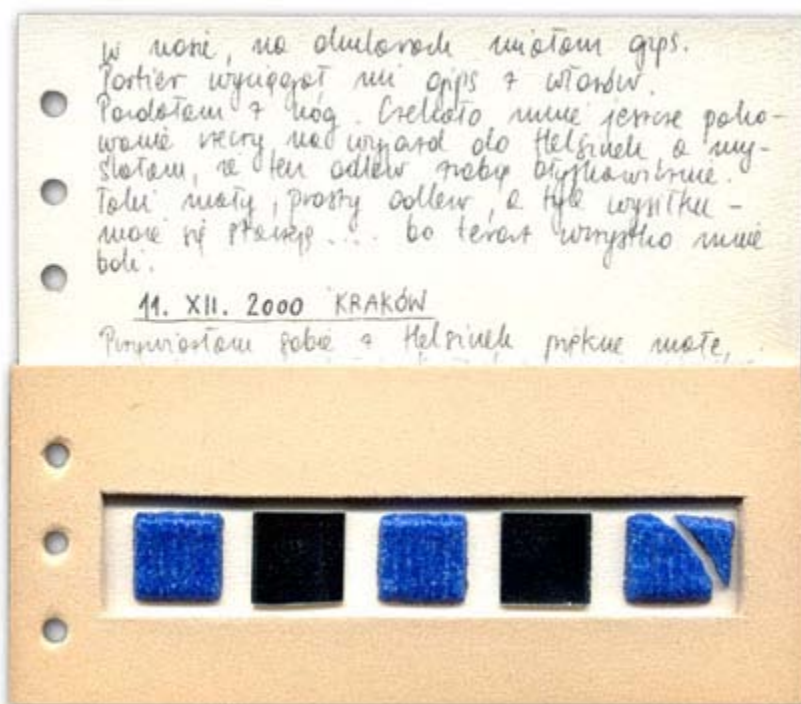 w nosie, na okularach miałam gips.
Portier wyciągał mi gips z włosów.
Padałam z nóg. Czekało mnie jeszcze pako-
wanie rzeczy na wyjazd do Helsinek a my-
ślałam, że ten odlew zrobię błyskawicznie.
Taki mały, prosty odlew, a tyle wysiłku -
może się starzeję.... bo teraz wszystko mnie
boli.
11. XII. 2000 KRAKÓW
Przywiozłam sobie z Helsinek piękne małe,